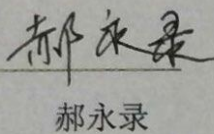 郝永录
郝永录